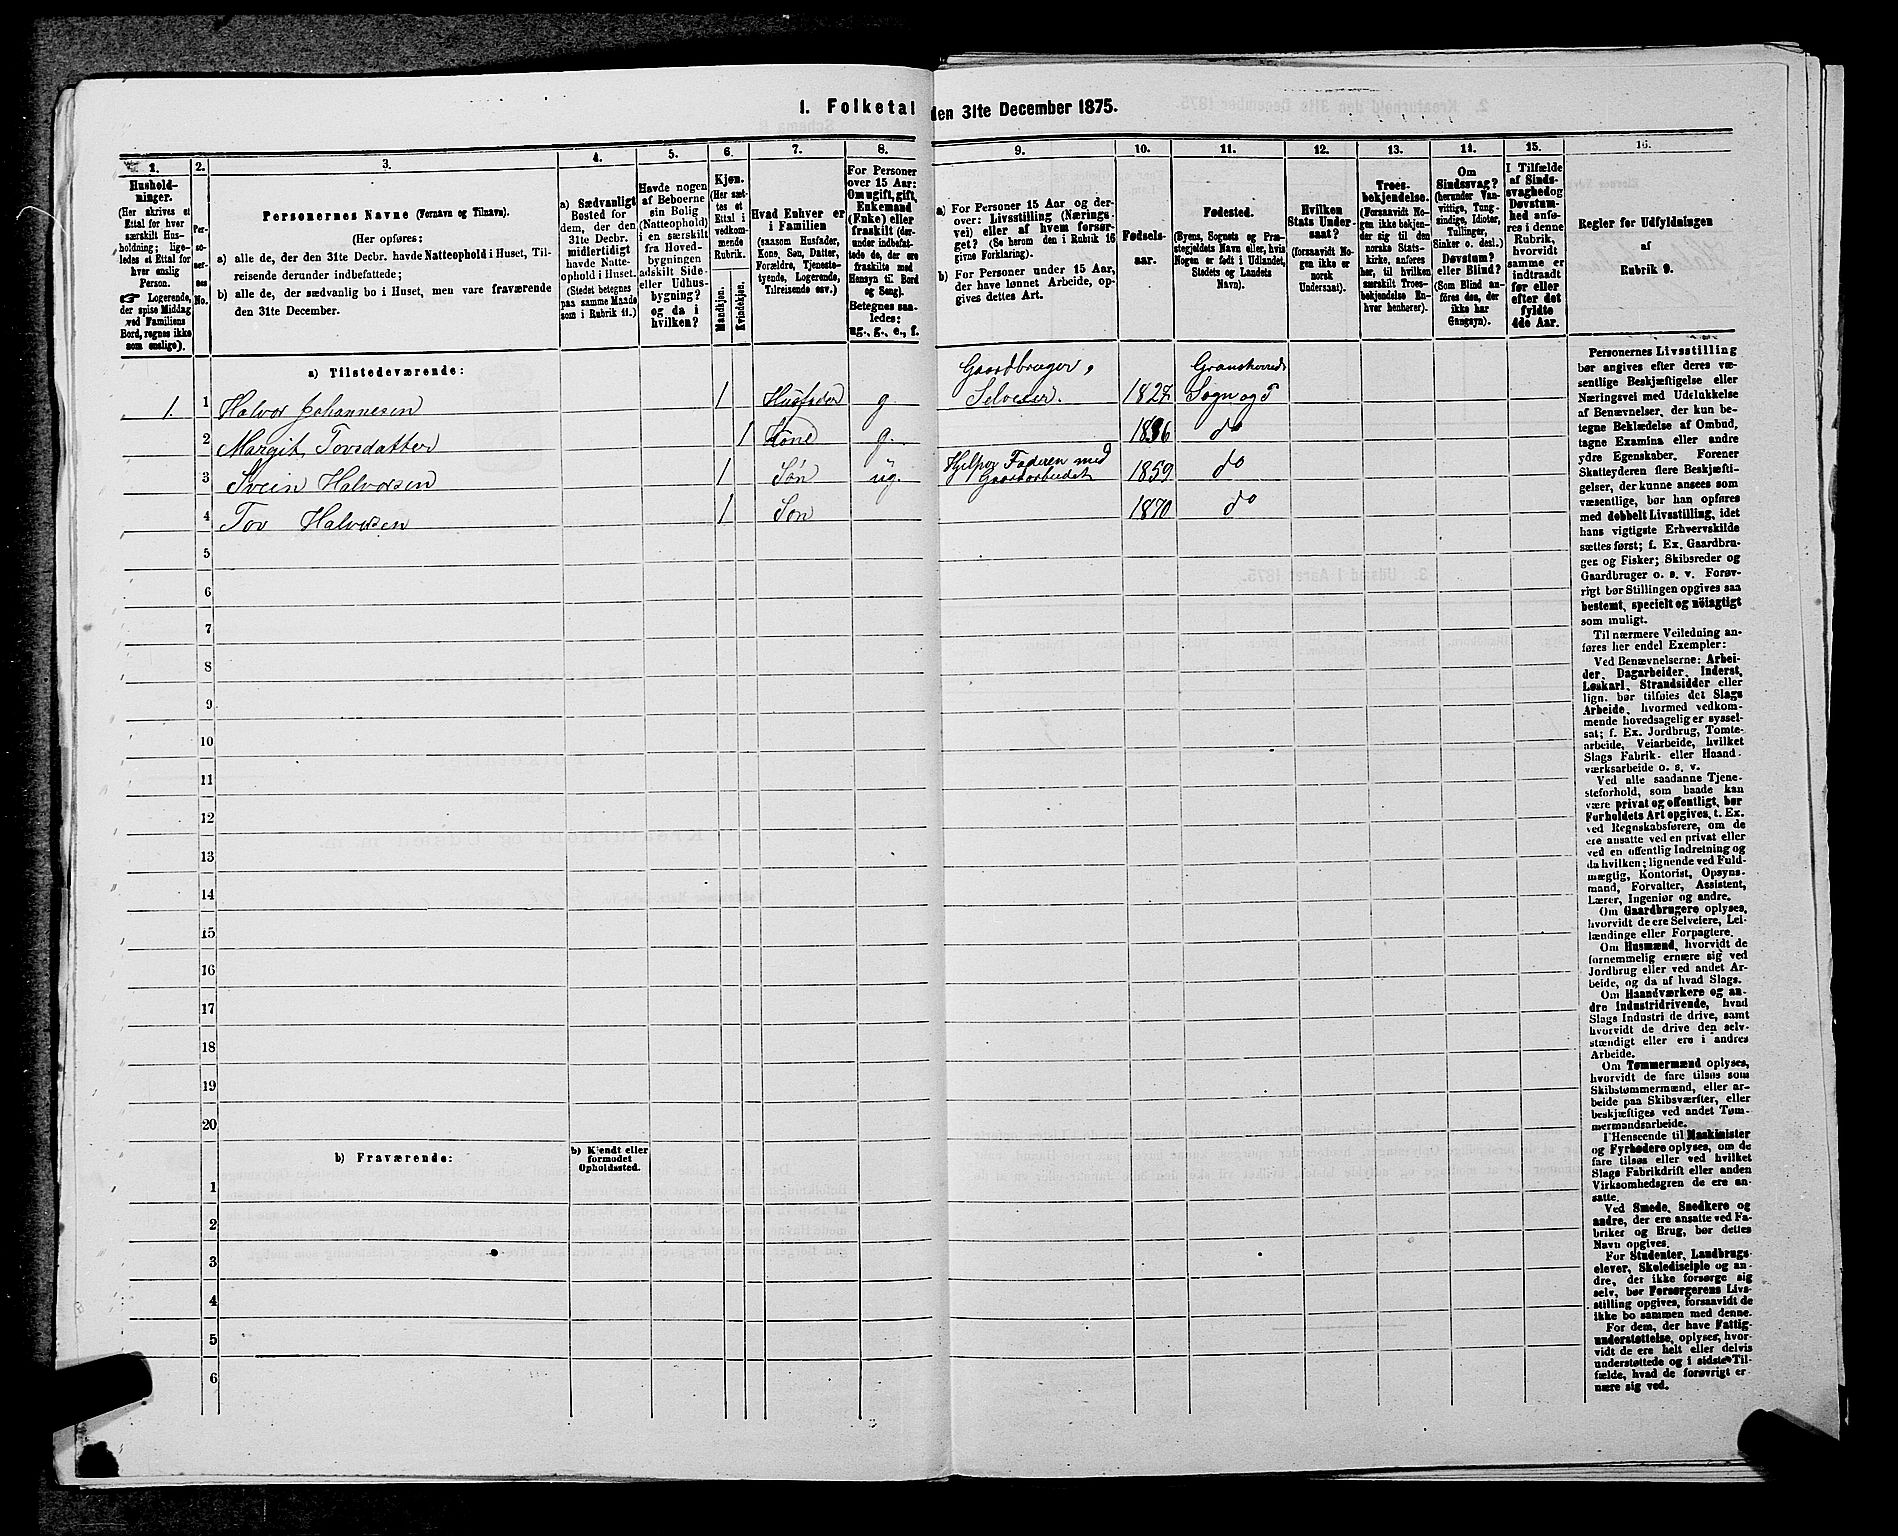 1. Folketal den 31te December 1875.
1.
Hushold-
ninger.
(Her skrives et
Ettal for hver
særskilt Hus-
holdning; lige-
ledes et Ettal for
hver enslig
Person.
☞ Logerende,
der spise Middag
ved Familiens
Bord, regnes ikke
som enslige).
2.
Per-
so-
ner-
nes
No.
3.
Personernes Navne (Fornavn og Tilnavn).
(Her opføres:
a) alle de, der den 31te Decbr. havde Natteophold i Huset, Til-
reisende derunder indbefattede;
b) alle de, der sædvanlig bo i Huset, men vare fraværende
den 31te December.
4.
a) Sædvanligt
Bosted for
dem, der den
31te Decbr.
midlertidigt
havde Natte-
ophold i Huset.
(Stedet betegnes
paa samme Maade
som i Rubrik 11.)
5.
Havde nogen
af Beboerne
sin Bolig
(Natteophold)
i en særskilt
fra Hoved-
bygningen
adskilt Side-
eller Udhus-
bygning?
og da i
hvilken?
6.
Kjøn.
(Her sæt-
tes et
Ettal i
vedkom-
mende
Rubrik.
Mandkjøn.
Kvindekjøn.
7.
Hvad Enhver er
i Familien
(saasom Husfader,
Kone, Søn, Datter,
Forældre, Tjeneste-
tyende, Logerende,
Tilreisende osv.)
8.
For Personer
over 15 Aar:
Om ugift, gift,
Enkemand
(Enke) eller
fraskilt (der-
under indbefat-
tede de, der ere
fraskilte med
Hensyn til Bord
og Seng).
Betegnes saa-
ledes:
ug., g., e., f.
9.
a) For Personer 15 Aar og der-
over: Livsstilling (Nærings-
vei) eller af hvem forsør-
get? (Se herom den i Rubrik 16
givne Forklaring).
b) For Personer under 15 Aar,
der have lønnet Arbeide, op-
gives dettes Art.
10.
Fødsels-
aar.
11.
Fødested.
(Byens, Sognets og Præ-
stegjeldets Navn eller, hvis
Nogen er født i Udlandet,
Stedets og Landets
Navn).
12.
Hvilken
Stats Under-
saat?
(forsaavidt No-
gen ikke er
norsk
Undersaat).
13.
Troes-
bekjendelse.
(Forsaavidt No-
gen ikke bekjen-
der sig til den
norske Stats-
kirke, anføres
her, til hvilken
særskilt Troes-
bekjendelse En-
hver henhører).
14.
Om
Sindssvag?
(herunder Van-
vittige, Tung-
sindige, Idioter,
Tullinger,
Sinker o. desl.)
Døvstum?
eller Blind?
(Som Blind an-
føres den, der
ikke har
Gangsyn).
15.
I Tilfælde
af Sinds-
svaghed og
Døvstum-
hed anfø-
res i denne
Rubrik,
hvorvidt
samme er
indtraadt
før eller
efter det
fyldte
4de Aar.
16.
Regler for Udfyldningen
af
Rubrik 9.
a) Tilstedeværende:
1. 1 Halvor Johannesen 1 Husfader g. Gaardbruger, Selveier. 1827 Granskerreds Sogn og
2 Margit Tovsdatter 1 Kone g. 1836 do
3 Svein Halvorsen 1 Søn ug. Hjelper Faderen med Gaardarbeidet 1859 do
4 Tov Halvorsen 1 Søn 1870 do
5
6
7
8
9
10
11
12
13
14
15
16
17
18
19
20
b) Fraværende:
b) Kjendt eller
formodet
Opholdssted.
1
2
3
4
5
6
Personernes Livsstilling
bør angives efter deres væ-
sentlige Beskjæftigelse eller
Næringsvei med Udelukkelse
af Benævnelser, der kun be-
tegne Beklædelse af Ombud,
tagne Examina eller andre
ydre Egenskaber. Forener
Skatteyderen flere Beskjæfti-
gelser, der kunne ansees som
væsentlige, bør han opføres
med dobbelt Livsstilling, idet
hans vigtigste Erhvervskilde
sættes først; f. Ex. Gaardbru-
ger og Fisker; Skibsreder og
Gaardbruger o. s. v. Forøv-
rigt bør Stillingen opgives saa
bestemt, specielt og nöiagtigt
som muligt.
Til nærmere Veiledning an-
føres her endel Exempler:
Ved Benævnelserne: Arbei-
der, Dagarbeider, Inderst,
Løskarl, Strandsidder eller
lign. bør tilføies det Slags
Arbeide, hvormed vedkom-
mende hovedsagelig er syssel-
sat; f. Ex. Jordbrug, Tomte-
arbeide, Veiarbeide, hvilket
Slags Fabrik- eller Haand-
værksarbeide o. s. v.
Ved alle saadanne Tjene-
steforhold, som baade kan
være privat og offentligt, bør
Forholdets Art opgives, f. Ex.
ved Regnskabsførere, om de
ere ansatte ved en privat eller
ved en offentlig Indretning og
da hvilken; lignende ved Fuld-
mægtig, Kontorist, Opsyns-
mand, Forvalter, Assistent,
Lærer, Ingeniør og andre.
Om Gaardbrugere oplyses,
hvorvidt de ere Selveiere, Lei-
lændinge eller Forpagtere.
Om Husmænd, hvorvidt de
fornemmelig ernære sig ved
Jordbrug eller ved andet Ar-
beide, og da af hvad Slags.
Om Haandværkere og an-
dre Industridrivende, hvad
Slags Industri de drive, samt
hvorvidt de drive den selv-
stændigt eller ere i andres
Arbeide.
Om Tømmermænd oplyses,
hvorvidt de fare tilsøs som
Skibstømmermænd, eller ar-
beide paa Skibsværfter, eller
beskjæftiges ved andet Tøm-
mermandsarbeide.
I Henseende til Maskinister
og Fyrbødere oplyses, om de
fare tilsøs eller ved hvilket
Slags Fabrikdrift eller anden
Virksomhedsgren de ere an-
satte.
Ved Smede, Snedkere og
andre, der ere ansatte ved Fa-
briker og Brug, bør dettes
Navn opgives.
For Studenter, Landbrugs-
elever, Skoledisciple og an-
dre, der ikke forsørge sig
selv, bør Forsørgerens Livs-
stilling opgives, forsaavidt de
ikke bo sammen med denne.
For dem, der have Fattig-
understøttelse, oplyses, hvor-
vidt de ere helt eller delvis
understøttede og i sidste Til-
fælde, hvad de forøvrigt er-
nære sig ved.